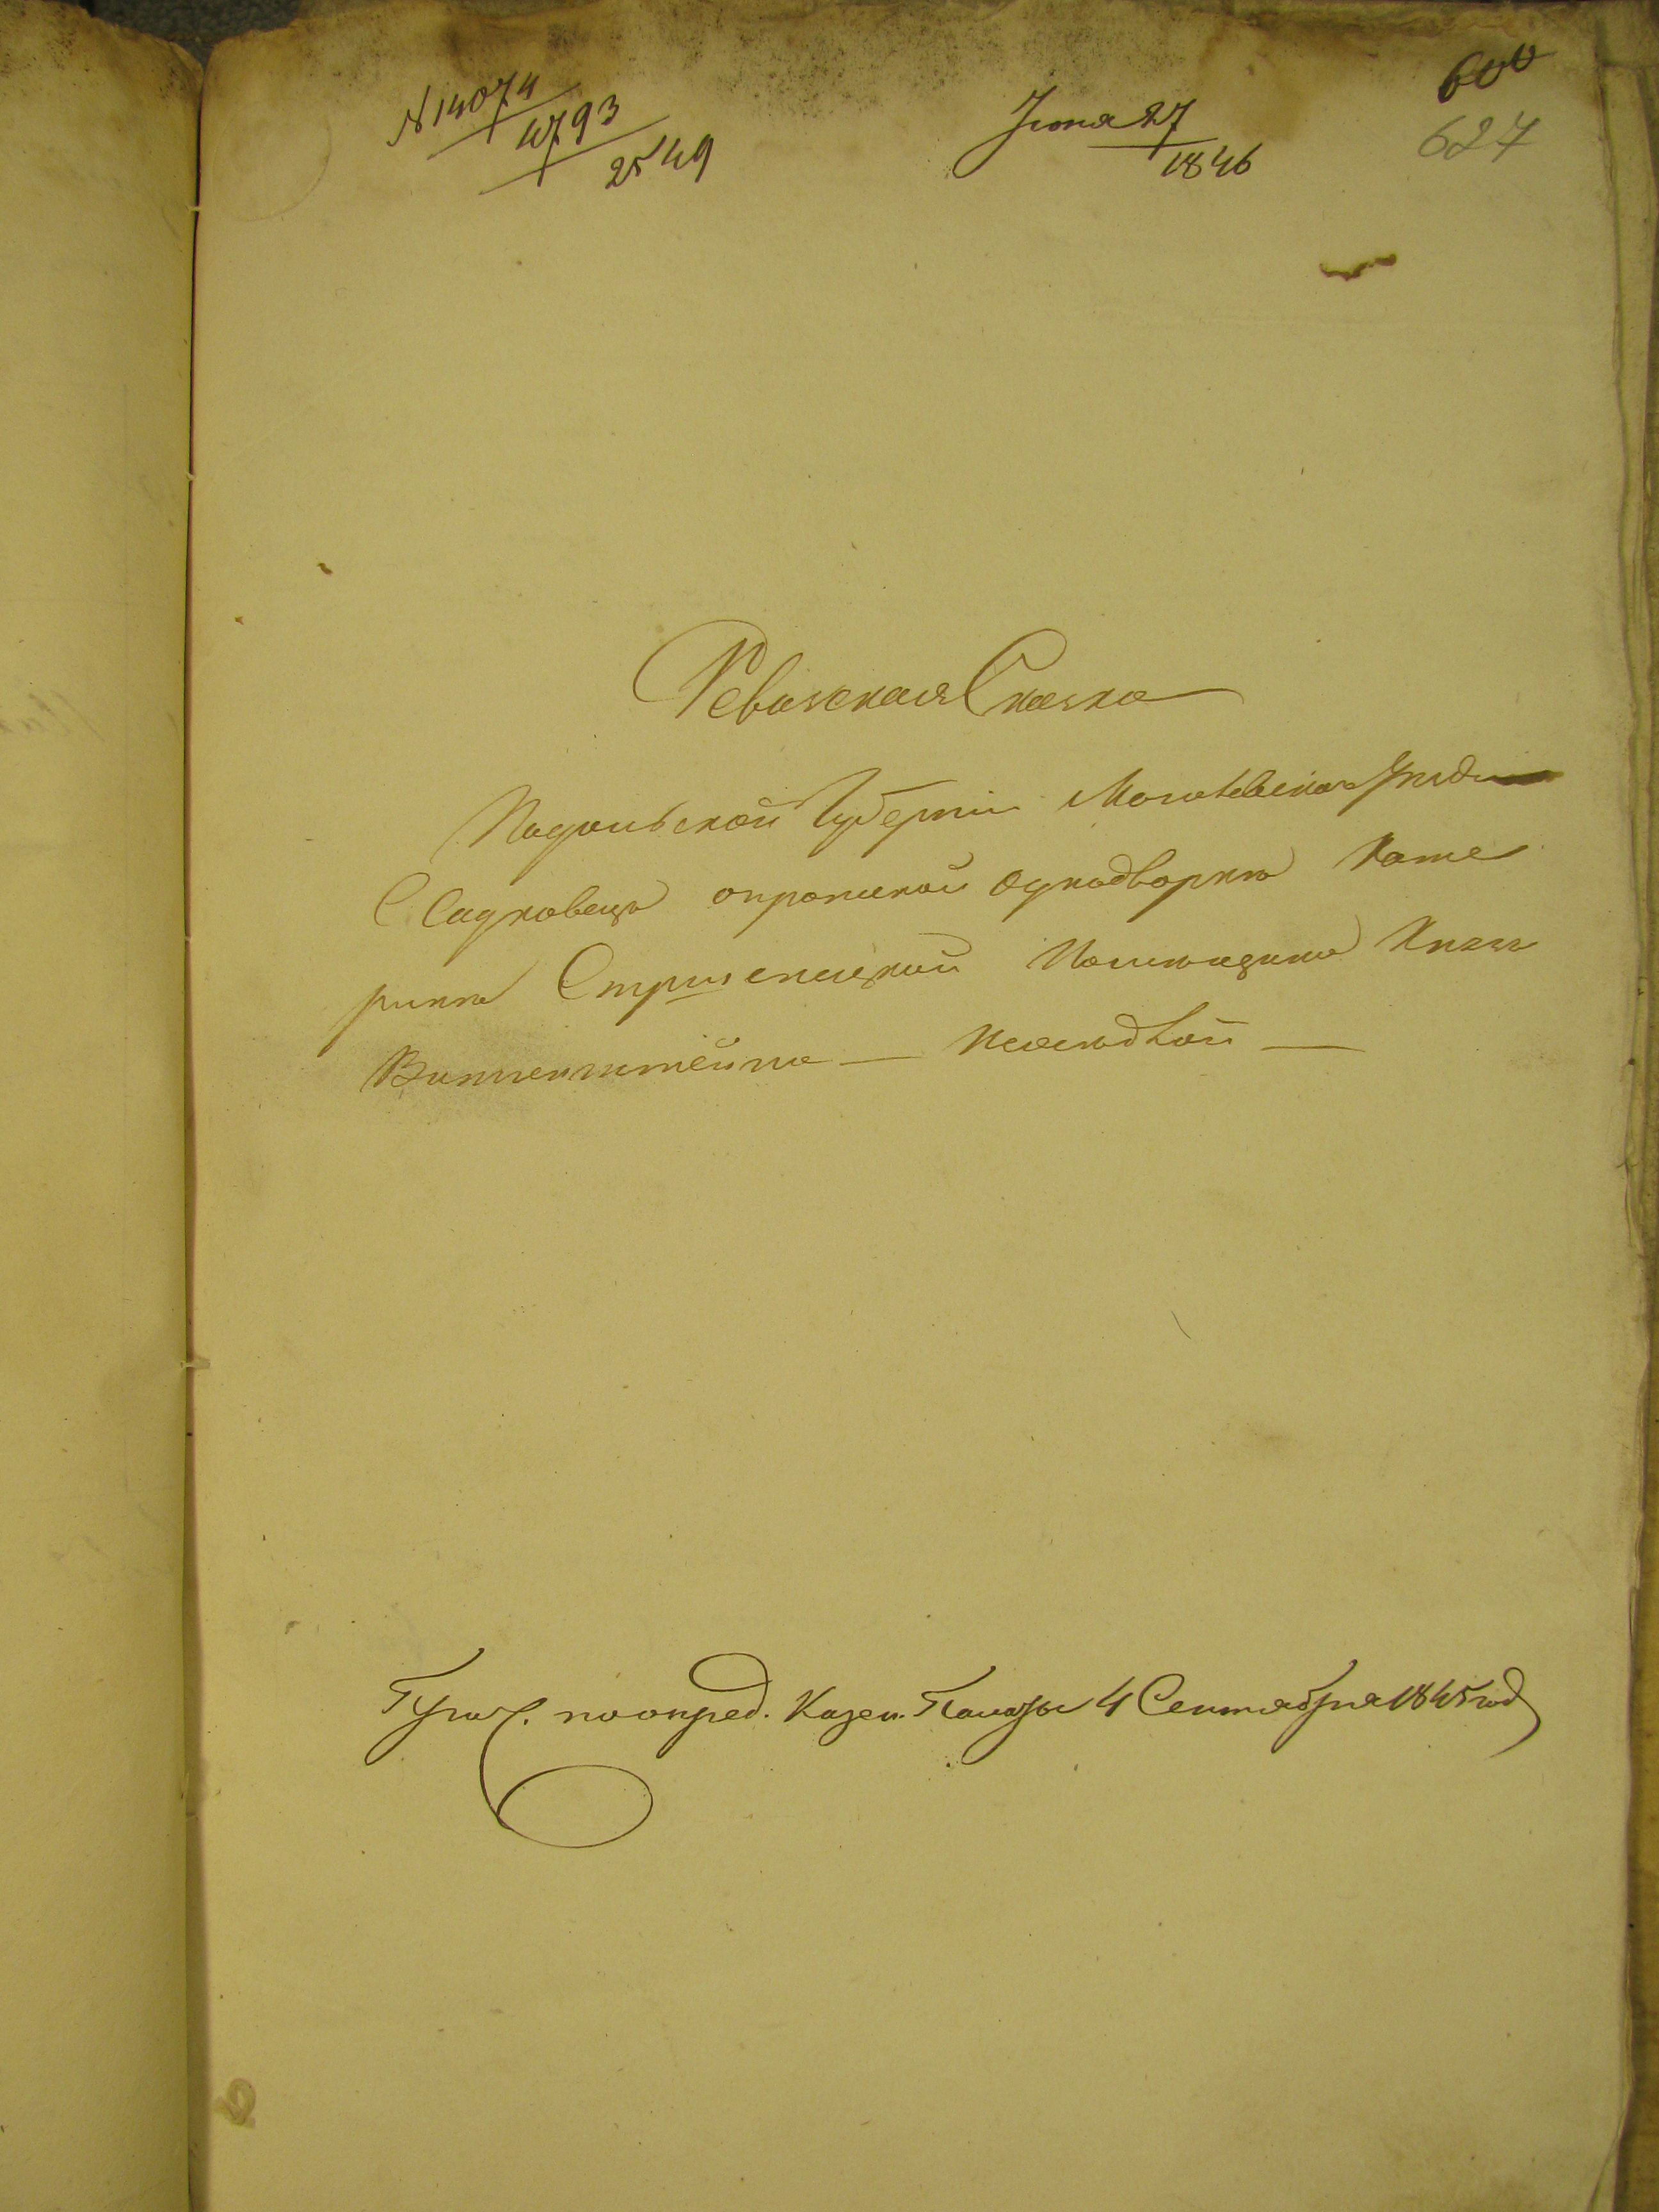 № 14074
4793
2549
Июня 27
1846
600
627
Ревизская Сказка
Подольской Губернiи Могилевскаго Уезда
С Садковець о одnодворкѣ Кате
ринѣ Помѣщика Князя
Витгенштейна —
по опред. Казен. Палаты 4 Сентября 1845 год